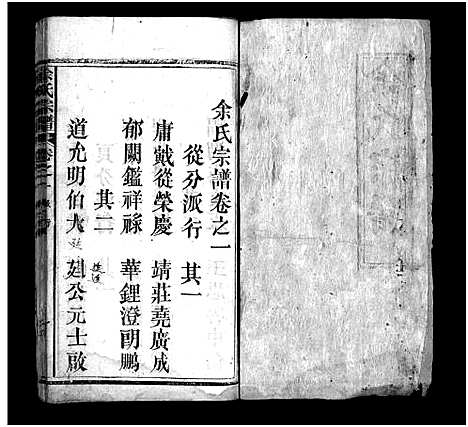 余氏宗譜卷之一
從分派行 其一
庸戴從榮慶 靖莊堯廣成
郁闕鑑祥祿 華鋰澄朗鵬
其二
道允明伯大 廷公元士啟
余氏宗譜 卷之一